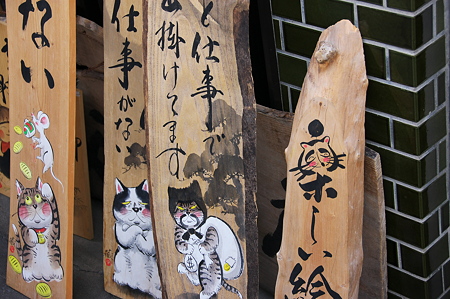 楽しい絵
と仕事で
掛けてます
仕事がない
ない